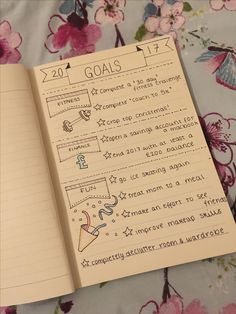 20 GOALS 17
FITNESS
Complete a "30 day"
fitness challenge
complete "couch to 5k"
crop top christmas!
FINANCE
£
open a savings account for
a macbook
End 2017 with at least a
£200 balance
FUN
go ice skating again
treat mom to a meal
make an effort to see
friends
improve makeup skills
completely declutter room & wardrobe